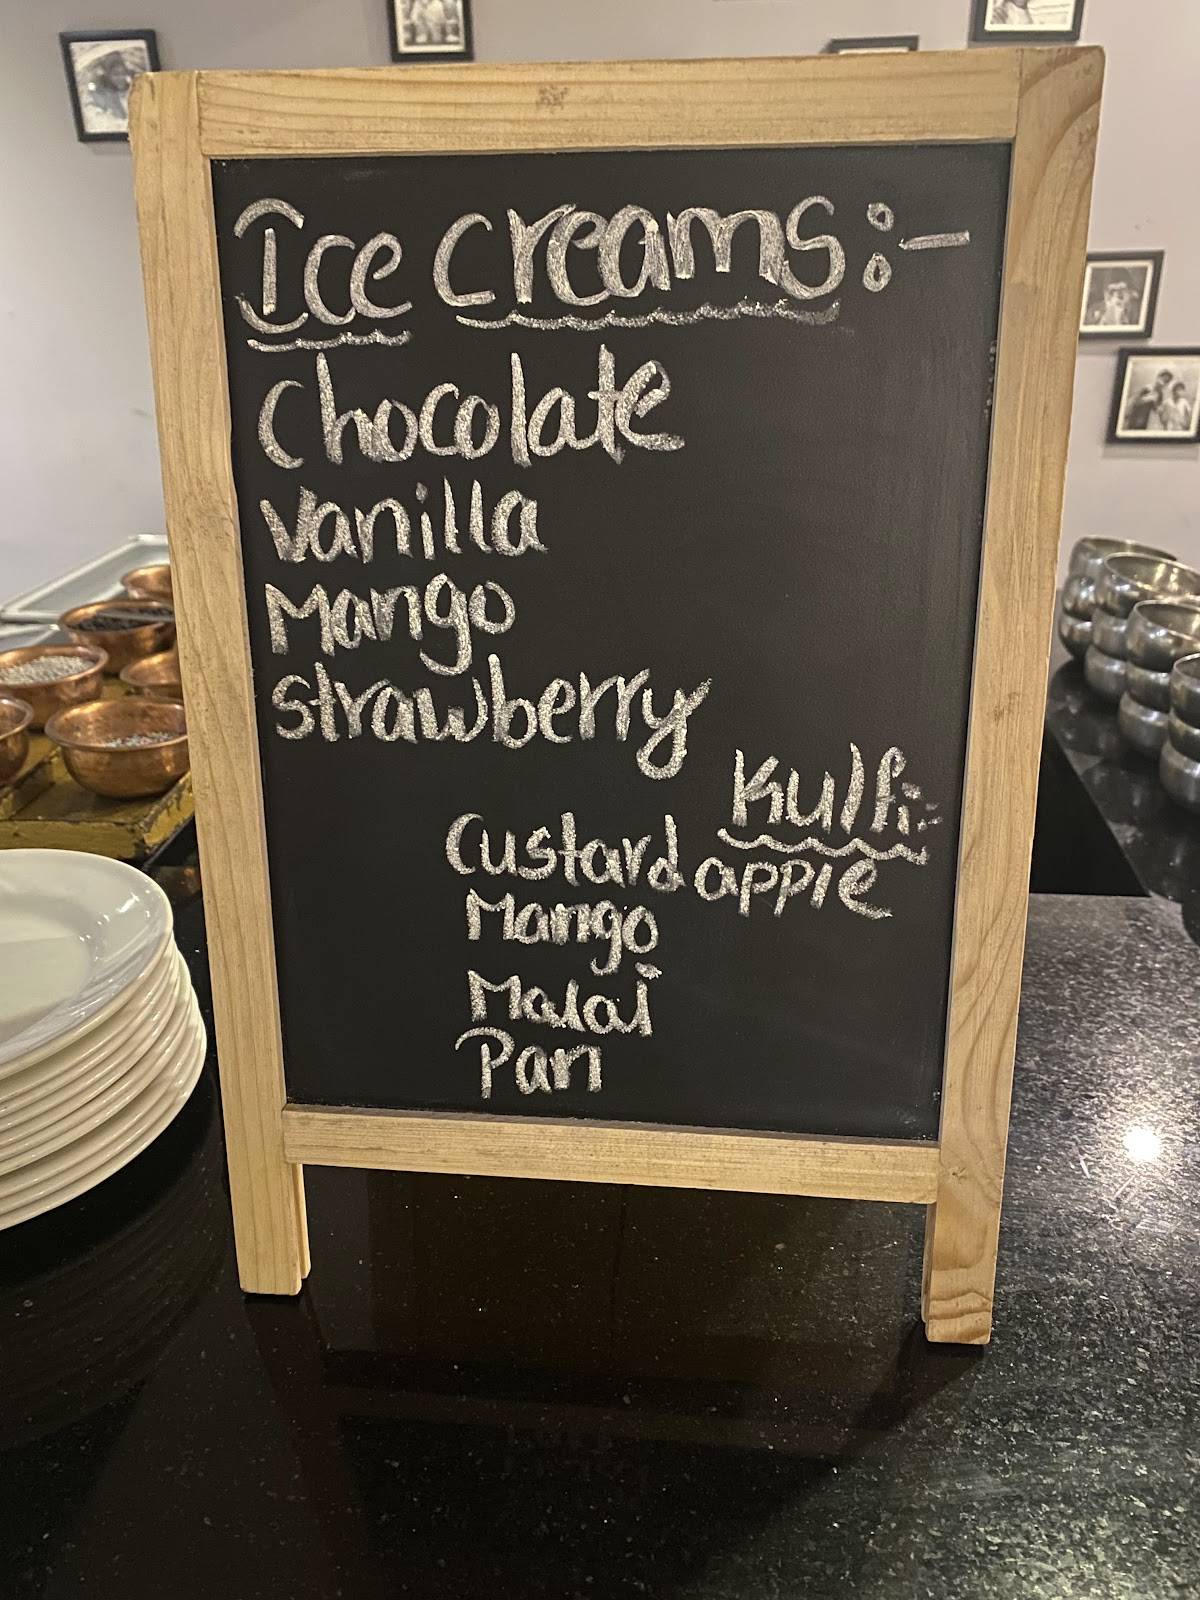 Ice Creams:-
Chocolate
Vanilla
Mango
Strawberry
Kulfi:-
Custard apple
Mango
Malai
Pan